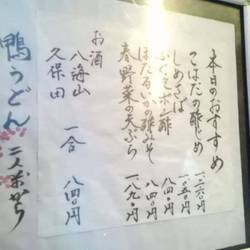 本日のおすすめ
こはだの酢じめ 一二六〇円
しめさば 一〇五〇円
ふぐ皮ポン酢 八四〇円
ほたるいかの酢みそ 八四〇円
春野菜の天ぷら 一八九〇円
お酒
八海山
久保田 一合 八四〇円
鴨うどん 二人前から